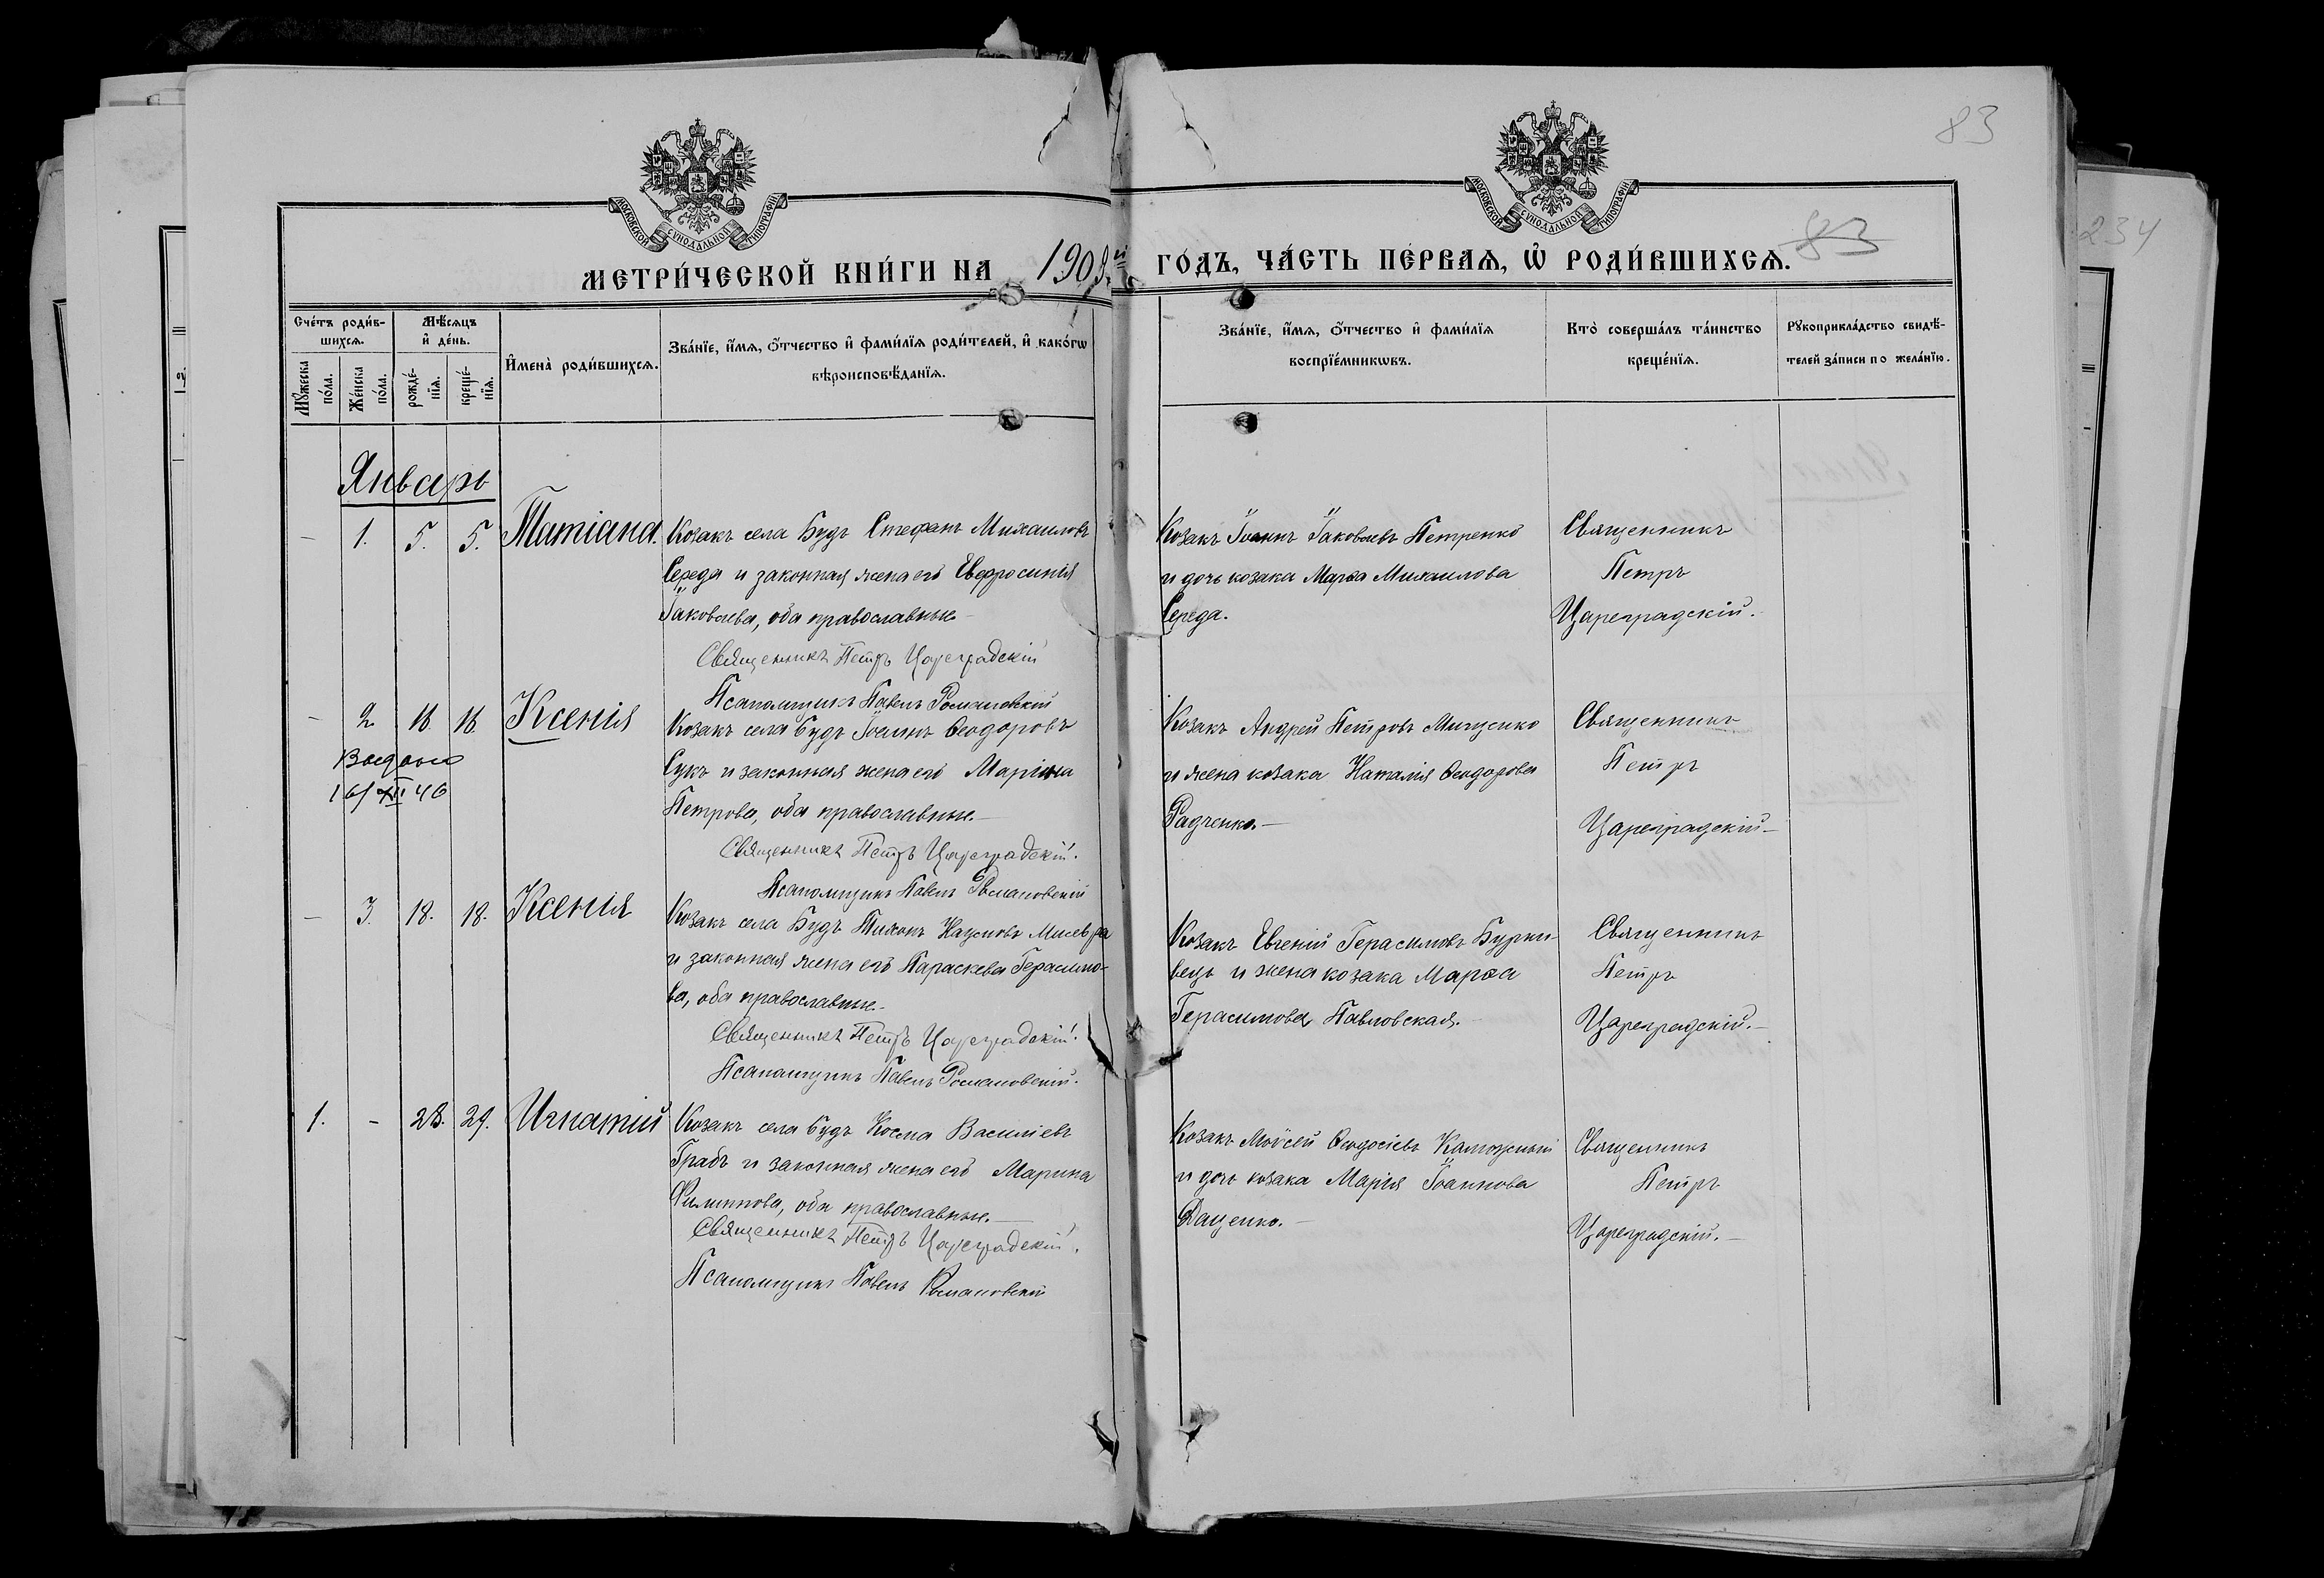 83
МОСКОВСКОЙ СУНОДАЛЬНОЙ ТИПОГРАФІИ
МОСКОВСКОЙ СУНОДАЛЬНОЙ ТИПОГРАФІИ
83
234
МЕТРИ́ЧЕСКОЙ КНИ́ГИ НА 1909й ГО́ДЪ, ЧА́СТЬ ПЕ́РВАЯ, Ѡ РОДИ́ВШИХСЯ.
Сче́тъ роди́в-
шихся.
Мѣ́сяцъ
и҆ де́нь.
Мꙋ́жеска
по́ла.
Же́нска
по́ла.
рожде́-
нїя.
креще́-
нїя.
И҆мена̀ роди́вшихся.
Зва́нїе, и҆́мя, ѻ҆́тчество и҆ фами́лїя роди́телей, и҆ како́гѡ
вѣроисповѣ́данїя.
Зва́нїе, и҆́мя, ѻ҆́тчество и҆ фами́лїя
воспрїе́мникѡвъ.
Кто̀ соверша́лъ та́инство
креще́нїя.
Рꙋкоприкла́дство свидѣ́-
телей за́писи по жела́нїю.
Январь
- 1. 5. 5. Татіана.
Козакъ села Будъ Стефанъ Михаиловъ
Середа и законная жена его Евфросинія
Іаковлева, оба православные
Священникъ Петръ Цареградскій
Псаломщикъ Павелъ Романовскій
Козакъ Іоаннъ Іаковлевъ Петренко
и дочь козака Марѳа Михаилова
Середа.
Священникъ
Петръ
Цареградскій.
- 2 16. 16. Ксенія
Выдано
16/XII 46
Козакъ села Будъ Іоаннъ Ѳеодоровъ
Сукъ и законная жена его Марина
Петрова, оба православные.
Священникъ Петръ Цареградскій.
Псаломщикъ Павелъ Романовскій
Козакъ Андрей Петровъ Мищенко
и жена козака Наталія Ѳеодорова
Радченко.
Священникъ
Петръ
Цареградскій
- 3. 18. 18. Ксенія
Козакъ села Будъ Тихонъ Наумовъ
и законная жена его Параскева Герасимо-
ва, оба православные.
Священникъ Петръ Цареградскій.
Псаломщикъ Павелъ Романовскій.
Козакъ Евгеній Герасимовъ Бурки-
вецъ и жена козака Марѳа
Герасимова Павловская.
Священникъ
Петръ
Цареградскій.
1. - 28. 29. Игнатій
Козакъ села Будъ Косма Василіевъ
Градъ и законная жена его Марина
Филиппова, оба православные.
Священникъ Петръ Цареградскій.
Псаломщикъ Павелъ Романовскій
Козакъ Моѵсей Ѳеодосіевъ
и дочь козака Марія Іоаннова
Даценко.
Священникъ
Петръ
Цареградскій.